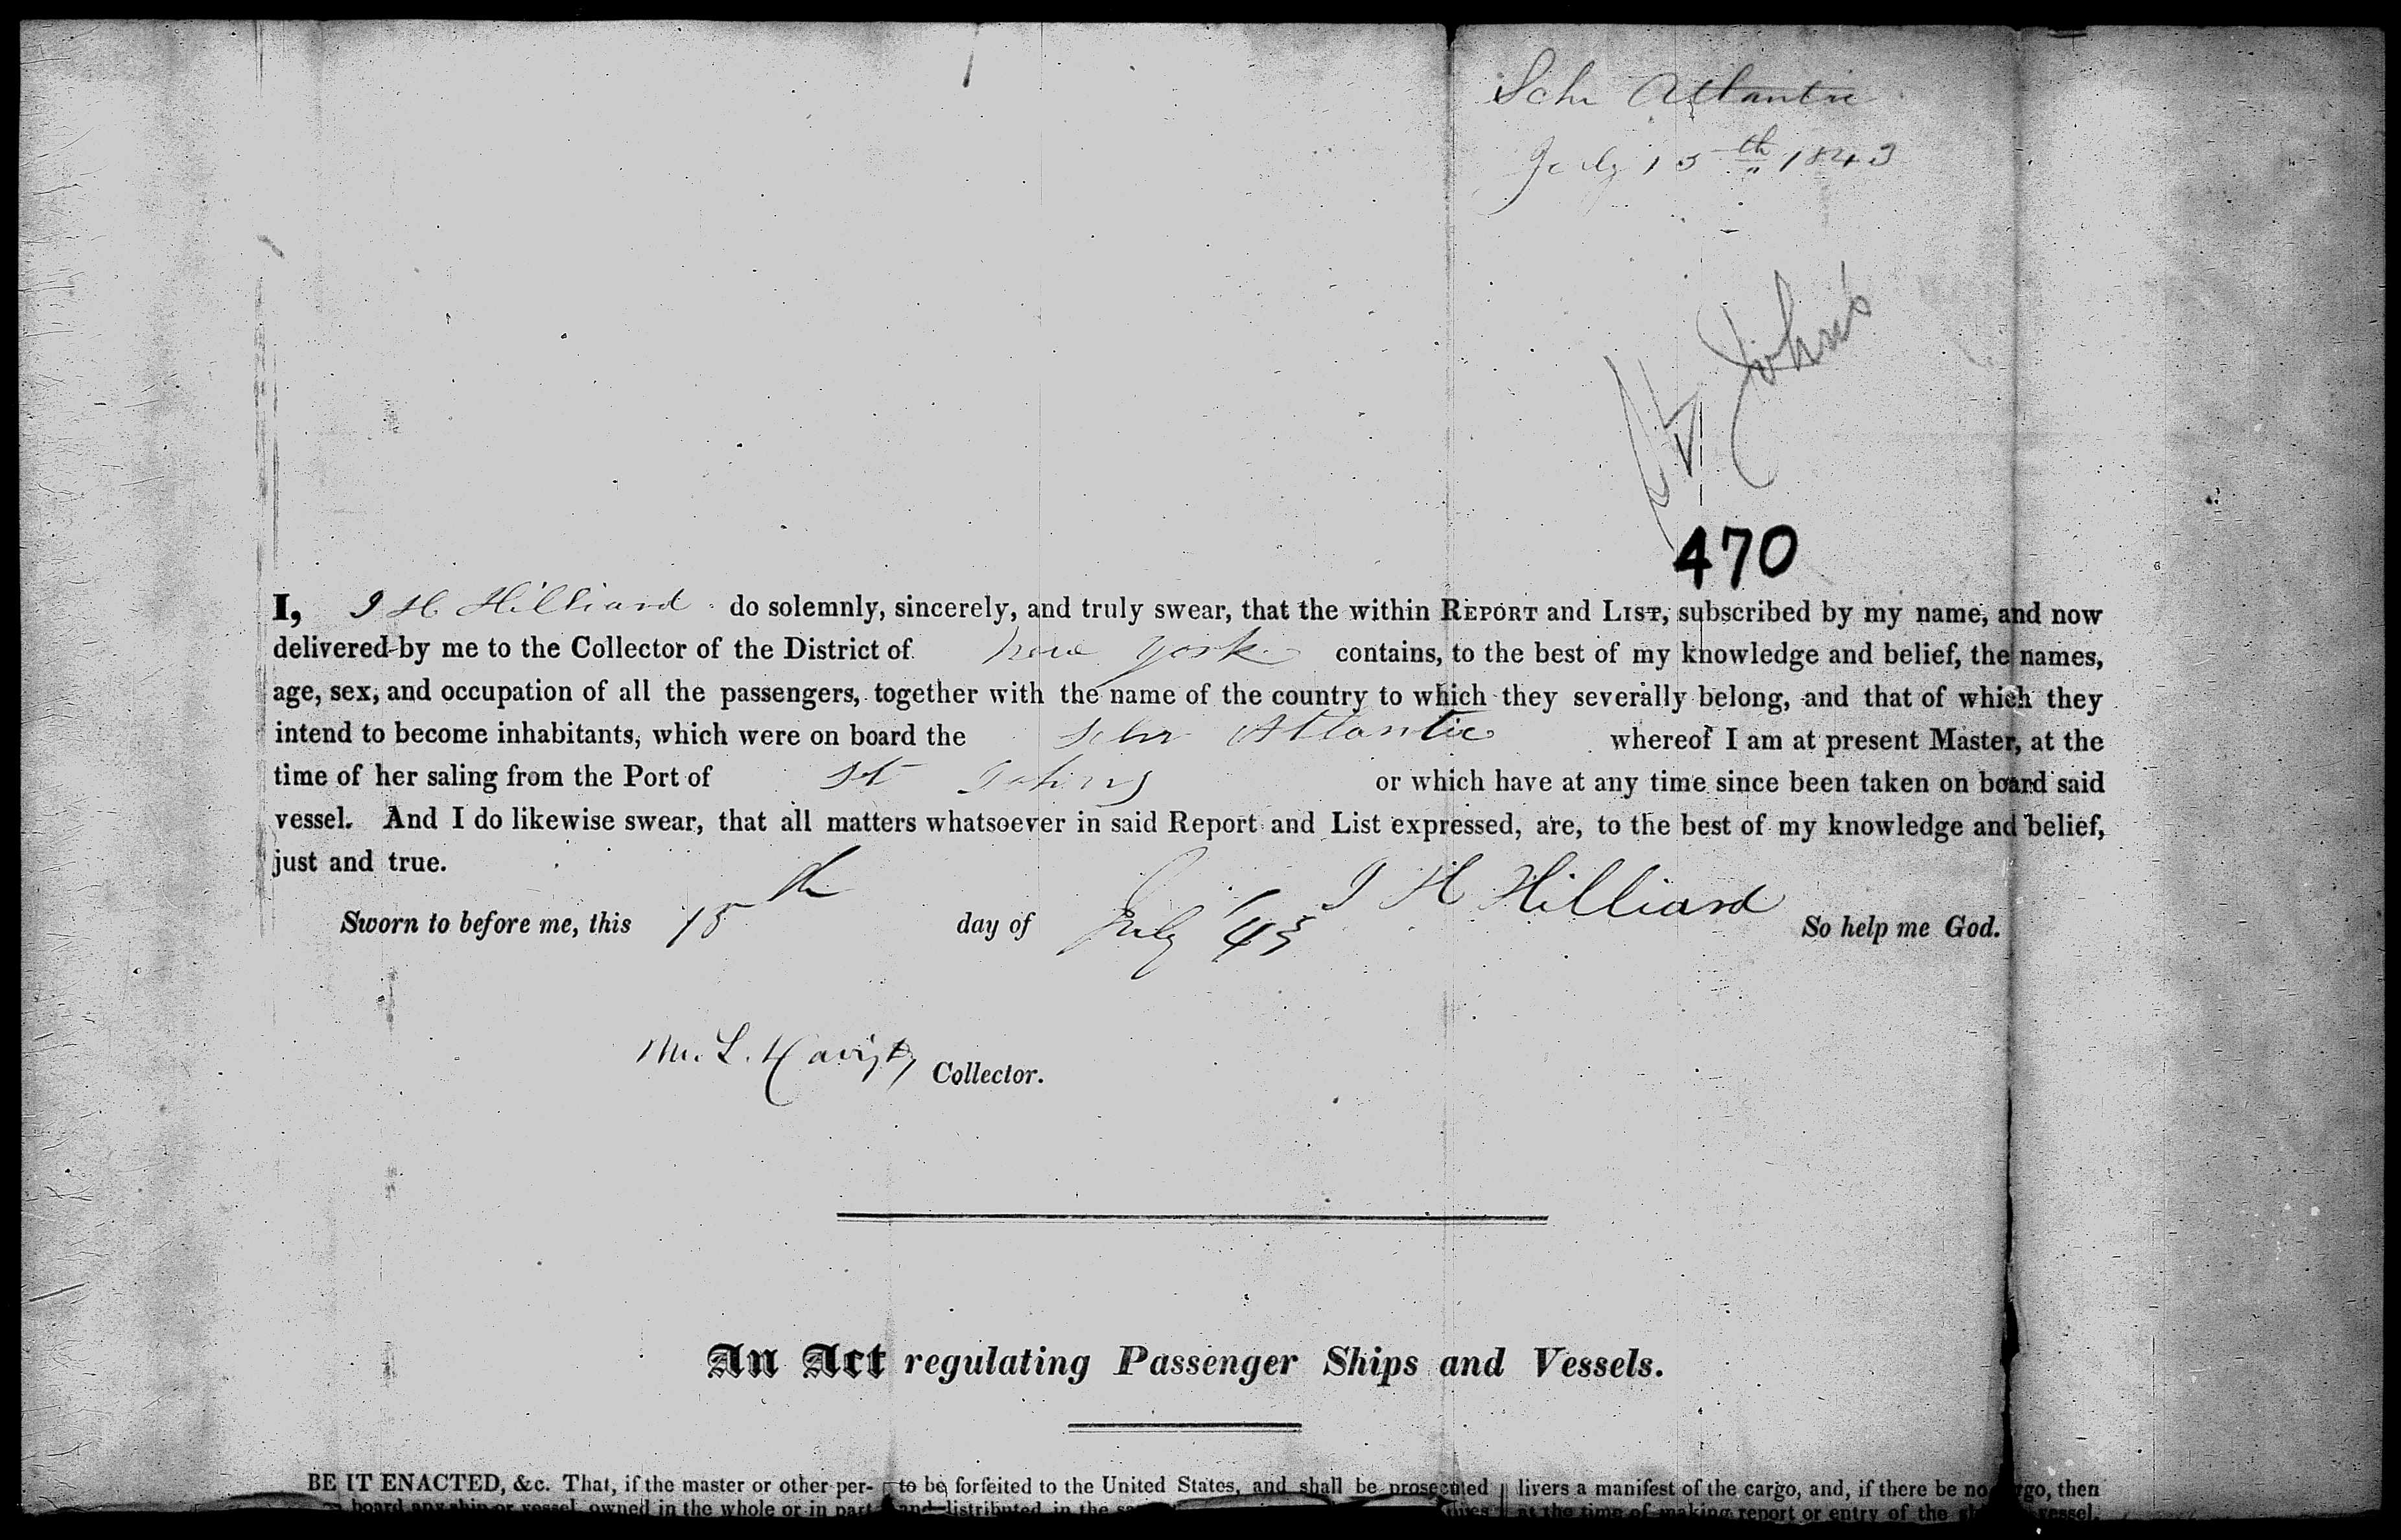 Schr Atlantic
July 15th 1843
St Johns
470
I, I H Hilliard do solemnly, sincerely, and truly swear, that the within REPORT and LIST, subscribed by my name, and now
delivered by me to the Collector of the District of New York contains, to the best of my knowledge and belief, the names,
age, sex, and occupation of all the passengers, together with the name of the country to which they severally belong, and that of which they
intend to become inhabitants, which were on board the Schr Atlantic whereof I am at present Master, at the
time of her saling from the Port of St Johns or which have at any time since been taken on board said
vessel. And I do likewise swear, that all matters whatsoever in said Report and List expressed, are, to the best of my knowledge and belief,
just and true.
I H Hilliard
Sworn to before me, this 15th day of July '43 So help me God.
Collector.
An Act regulating Passenger Ships and Vessels.
BE IT ENACTED, &c. That, if the master or other per- to be forfeited to the United States, and shall be prosecuted livers a manifest of the cargo, and, if there be no cargo, then
board any ship or vessel, owned in the whole or in part and distributed in the at the time of making report or entry of the vessel,